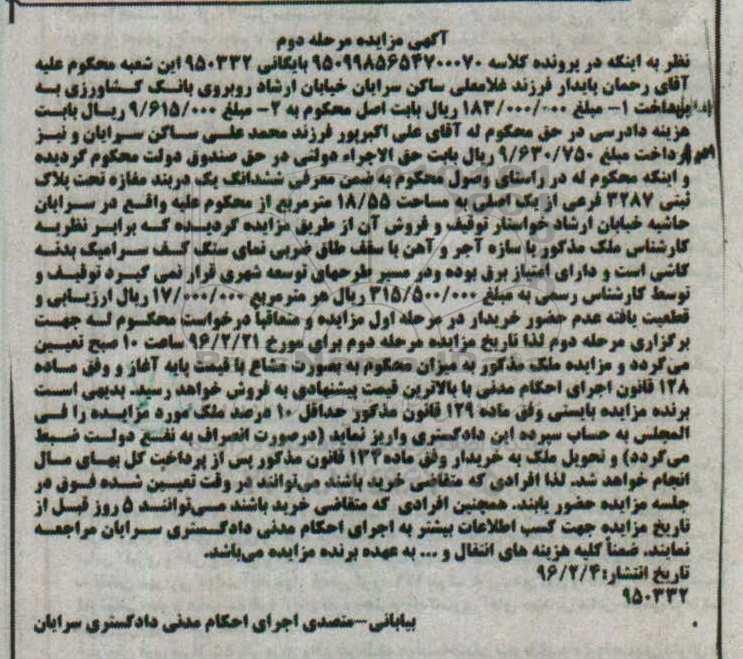 آگهی مزایده مرحله دوم
نظر به اینکه در پرونده کلاسه ۹۵۰۹۹۸۵۶۵۴۷۰۰۰۷۰ بایگانی ۹۵۰۳۳۲ این شعبه محکوم علیه
آقای رحمان پایدار فرزند غلامعلی ساکن سرایان خیابان ارشاد روبروی بانک کشاورزی به
پرداخت ۱- مبلغ ۱۸۳/۰۰۰/۰۰۰ ریال بابت اصل محکوم به ۲- مبلغ ۹/۶۱۵/۰۰۰ ریال بابت
هزینه دادرسی در حق محکوم له آقای علی اکبرپور فرزند محمد علی ساکن سرایان و نیز
پرداخت مبلغ ۹/۶۳۰/۷۵۰ ریال بابت حق الاجراء دولتی در حق صندوق دولت محکوم گردیده
و اینکه محکوم له در راستای وصول محکوم به ضمن معرفی ششدانگ یک دربند مغازه تحت پلاک
ثبتی ۳۲۸۷ فرعی از یک اصلی به مساحت ۱۸/۵۵ مترمربع از محکوم علیه واقع در سرایان
حاشیه خیابان ارشاد خواستار توقیف و فروش آن از طریق مزایده گردیده که برابر نظریه
کارشناس ملک مذکور با سازه آجر و آهن با سقف طاق ضربی نمای سنگ کف سرامیک بدنه
کاشی است و دارای امتیاز برق بوده ودر مسیر طرحهای توسعه شهری قرار نمی گیرد توقیف و
توسط کارشناس رسمی به مبلغ ۳۱۵/۵۰۰/۰۰۰ ریال هر مترمربع ۱۷/۰۰۰/۰۰۰ ریال ارزیابی و
قطعیت یافته عدم حضور خریدار در مرحله اول مزایده و متعاقبا درخواست محکوم له جهت
برگزاری مرحله دوم لذا تاریخ مزایده مرحله دوم برای مورخ ۹۶/۲/۲۱ ساعت ۱۰ صبح تعیین
می‌گردد و مزایده ملک مذکور به میزان محکوم به بصورت مشاع با قیمت پایه آغاز و وفق ماده
۱۲۸ قانون اجرای احکام مدنی با بالاترین قیمت پیشنهادی به فروش خواهد رسید. بدیهی است
برنده مزایده بایستی وفق ماده ۱۲۹ قانون مذکور حداقل ۱۰ درصد ملک مورد مزایده را فی
المجلس به حساب سپرده این دادگستری واریز نماید (درصورت انصراف به نفع دولت ضبط
می‌گردد) و تحویل ملک به خریدار وفق ماده۱۳۴ قانون مذکور پس از پرداخت کل بهای مال
انجام خواهد شد. لذا افرادی که متقاضی خرید باشند می‌توانند در وقت تعیین شده فوق در
جلسه مزایده حضور یابند. همچنین افرادی که متقاضی خرید باشند می‌توانند ۵ روز قبل از
تاریخ مزایده جهت کسب اطلاعات بیشتر به اجرای احکام مدنی دادگستری سرایان مراجعه
نمایند. ضمناً کلیه هزینه های انتقال و ... به عهده برنده مزایده می‌باشد.
تاریخ انتشار:۹۶/۲/۴
۹۵۰۳۳۲
بیابانی-متصدی اجرای احکام مدنی دادگستری سرایان